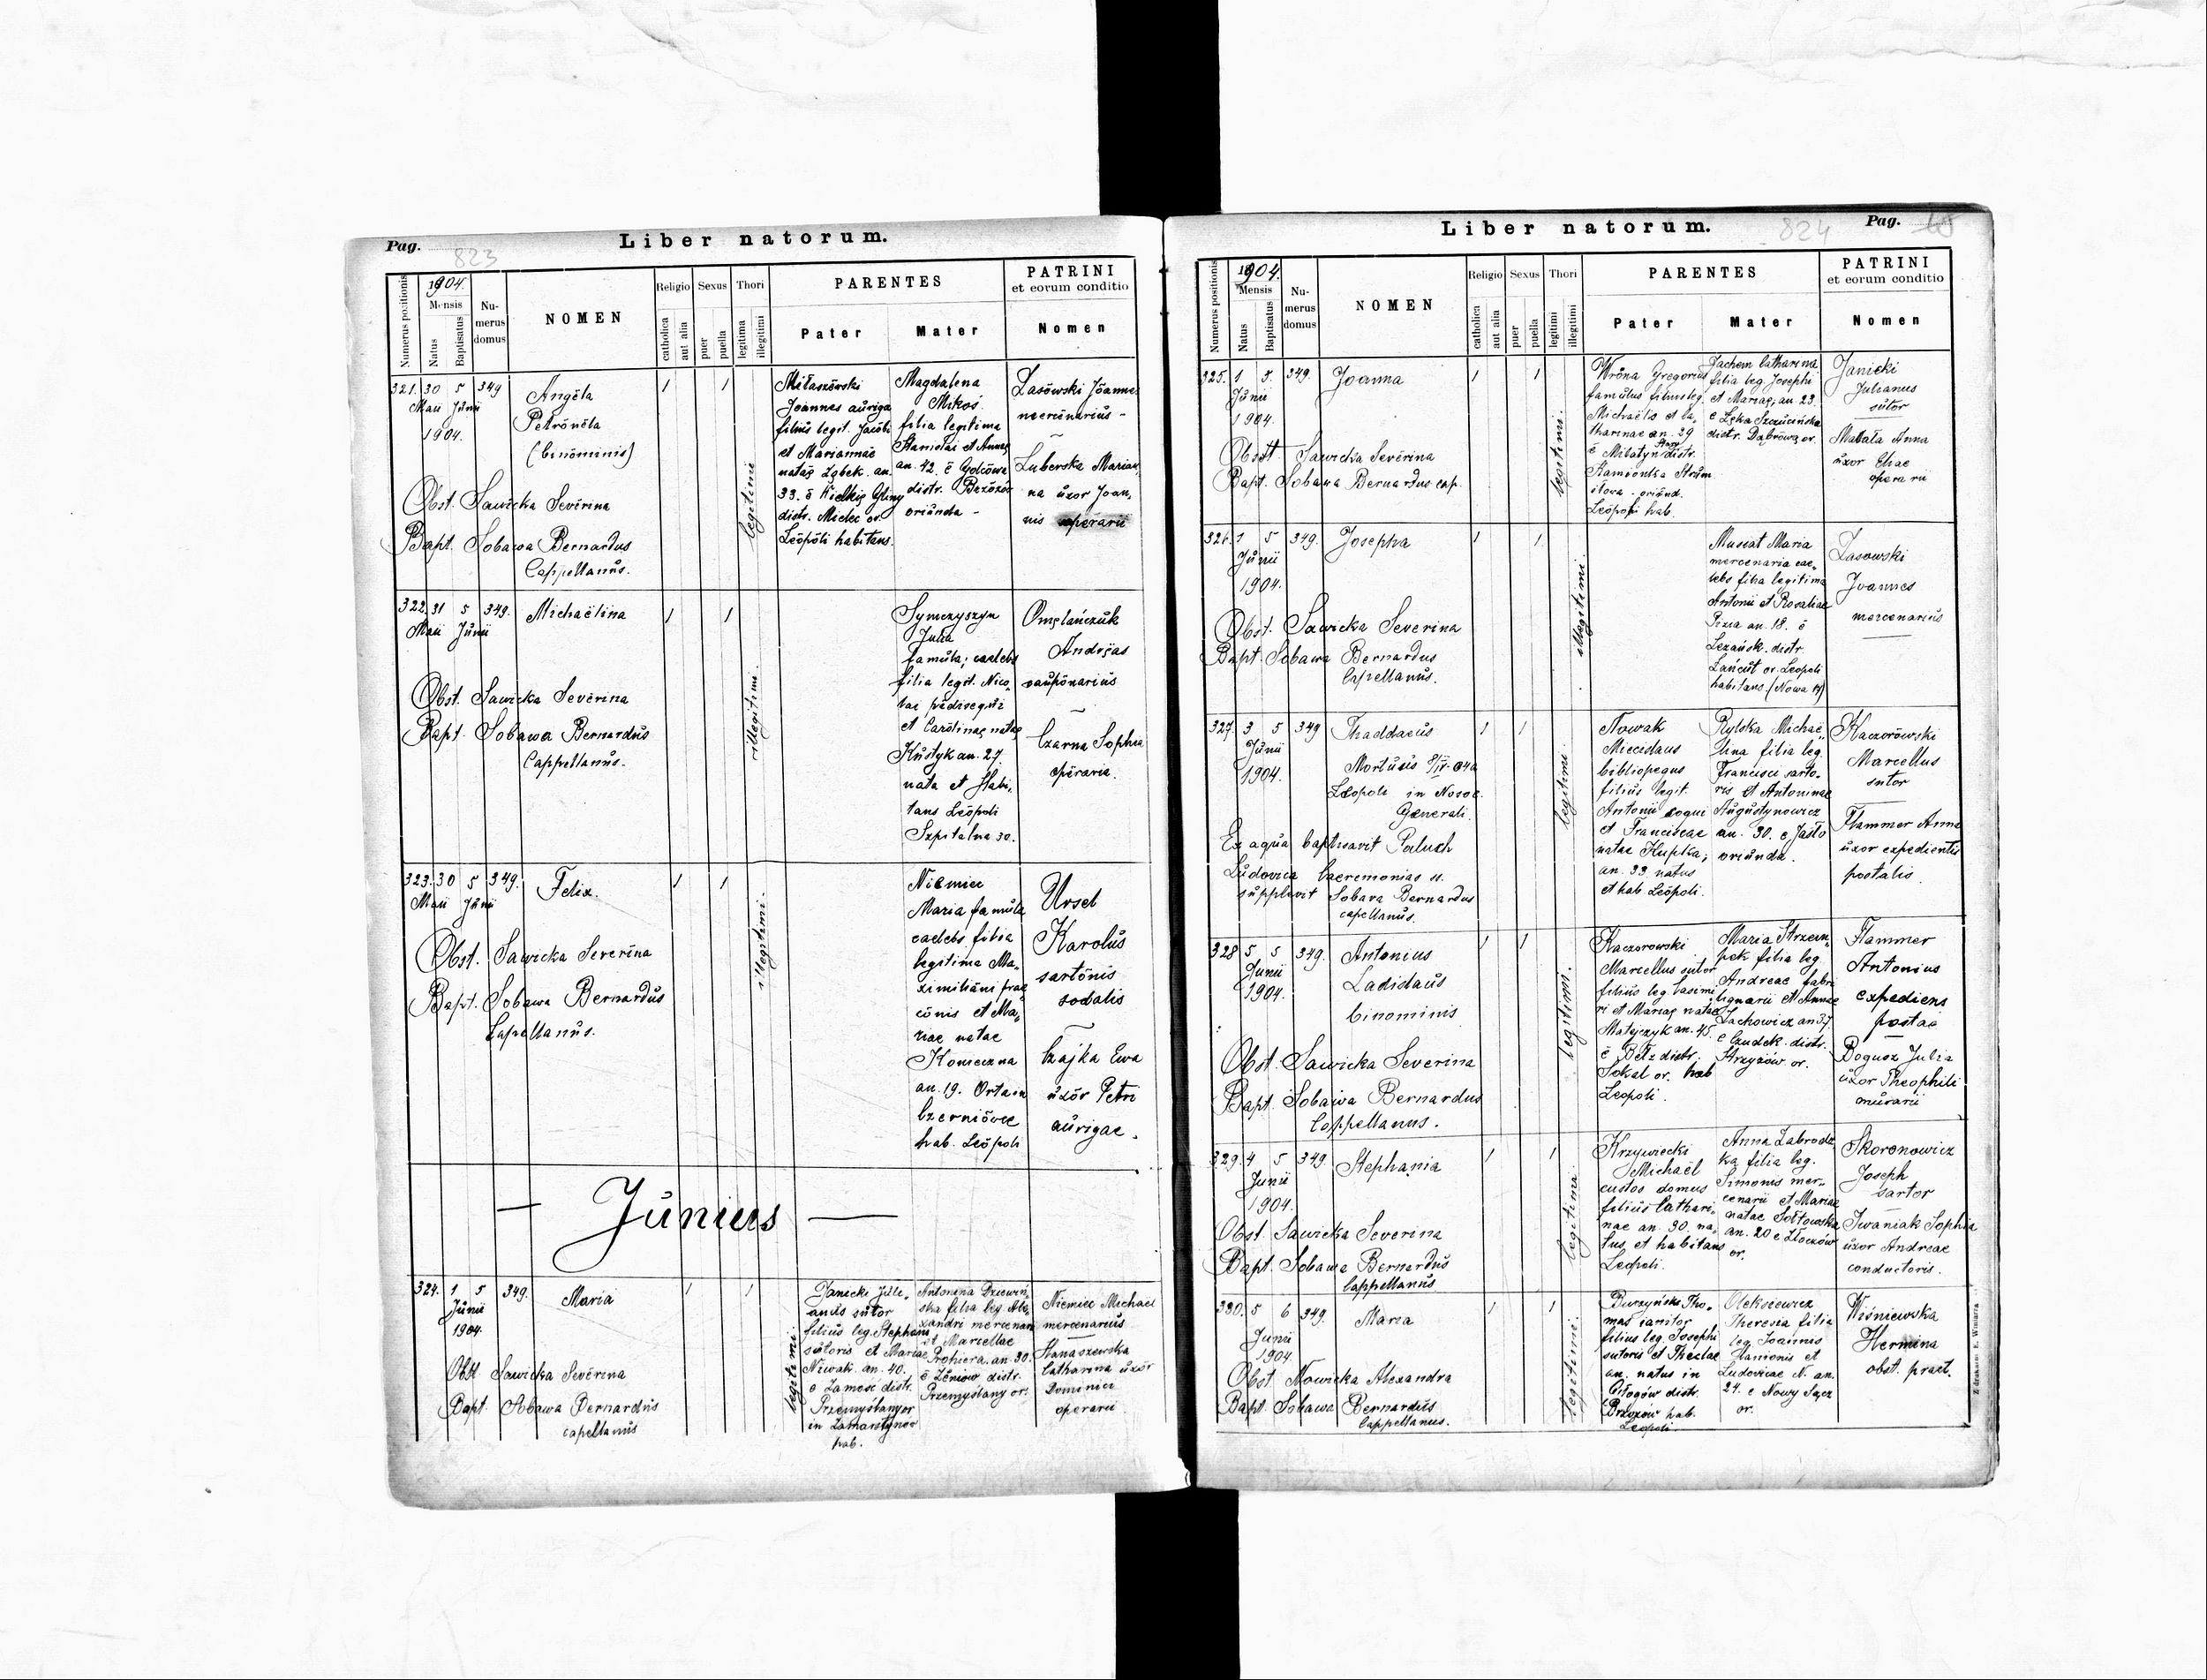 Pag. 823
Liber natorum.
Numerus positionis
1904.
Mensis
Natus
Baptisatus
Nu-
merus
domus
NOMEN
Religio
catholica
aut alia
Sexus
puer
puella
Thori
legitima
illegitimi
PARENTES
Pater
Mater
PATRINI
et eorum conditio
Nomen
321. 30 5 349
Maii Junii
1904.
Angela
Petronela
(binominis)
Obst. Sawicka Severina
Bapt. Sobawa Bernardus
Cappellanus.
1 1
legitimi
Miłaszewski
Joannes auriga
filius legit. Jacobi
et Mariannae
natae Ząbek. an.
33. e Kielków Gliny
distr. Mielec or.
Leopoli habitans.
Magdalena
Mikoś
filia legitima
Stanislai et Annae
an. 42. e Golcowa
distr. Brzozów
oriunda -
Lasowski Joannes
mercenarius -
Luberska Marian,
na uxor Joan,
nis operarii
322. 31 5 349.
Maii Junii
Michaëlina
Obst. Sawicka Severina
Bapt. Sobawa Bernardus
Cappellanus.
1 1
illegitimi.
Symczyszyn
Julia
famula; caelebs
filia legit. Nico,
lai
et Carolinae natae
Kustyk an. 27.
nata et Habi,
tans Leopoli
Szpitalna 30.
Omelańczuk
Andreas
Czarna Sophia
operaria.
323. 30 5 349.
Maii Junii
Felix.
Obst. Sawicka Severina
Bapt. Sobawa Bernardus
Capellanus.
1 1
illegitimi.
Niemiec
Maria famula
caelebs filia
legitima Ma,
ximiliani prae
conis et Ma,
riae natae
Konieczna
an. 19. Orta in
Czerniowce
hab. Leopoli
Ursel
Karolus
sartonis
sodalis
Czajka Ewa
uxor Petri
aurigae.
— Junius —
324. 1 5 349.
Junii
1904.
Maria
Obst Sawicka Severina
Bapt. Sobawa Bernardus
capellanus
1 1
legitimi.
Janicki Juli,
anus sutor
filius leg. Stephani
sutoris et Mariae
Niwak. an. 40.
e Zamość distr.
Przemyślany or
in Zamarstynów
hab.
Antonina Dziewiń,
ska filia leg. Ale,
xandri mercenarii
et Marcellae
Prohiera. an. 30.
e Zeniow distr.
Przemyślany or.
Niemiec Michael
mercenarius
Hanaszewska
Catharina uxor
Dominici
operarii
Liber natorum.
824
Pag.
Numerus positionis
1904.
Mensis
Natus
Baptisatus
Nu-
merus
domus
NOMEN
Religio
catholica
aut alia
Sexus
puer
puella
Thori
legitimi
illegitimi
PARENTES
Pater
Mater
PATRINI
et eorum conditio
Nomen
325. 1 5. 349.
Junii
1904.
Joanna
Obstt Sawicka Severina
Bapt. Sobawa Bernardus cap.
1 1
legitimi.
Wrona Gregorius
famulus filius leg.
Michaelis et Ca,
tharinae an. 29
e Milatyn Stary distr.
Kamionka Strum
iłowa - oriund.
Leopoli hab.
Jachem Catharina
filia leg. Josephi
et Mariae, an. 23.
e Łęka Szczucińska
distr. Dąbrowa or.
Janicki
Julianus
sutor
Matała Anna
uxor Eliae
operarii
326. 1 5 349.
Junii
1904.
Josepha
Obst. Sawicka Severina
Bapt. Sobawa Bernardus
Capellanus.
1 1
illegitimi.
Muscat Maria
mercenaria cae,
lebs filia legitima
Antonii et Rosaliae
Pizia an. 18. e
Leżańsk. distr.
Łańcut or. Leopoli
habitans.
Lasowski
Joannes
mercenarius
327. 3 5 349
Junii
1904.
Thaddaeus
Leopoli in Nosoc.
Generali.
Ex aqua baptisavit Paluch
Ludovica Caeremonias ss.
supplevit Sobawa Bernardus
capellanus.
1 1
legitimi.
Nowak
Miecislaus
bibliopegus
filius legit.
Antonii coqui
et Franciscae
natae Kupka;
an. 33 natus
et hab Leopoli.
Rylska Michaë,
lina filia leg.
Francisci sarto-
ris et Antoninae
Augustynowicz
an. 30. e Jasło
oriunda.
Kaczorowski
Marcellus
sutor
Flammer Anna
uxor expedientis
postalis
328 5 5 349.
Junii
1904.
Antonius
Ladislaus
binominis
Obst. Sawicka Severina
Bapt. Sobawa Bernardus
Cappellanus.
1 1
legitimi.
Kaczorowski
Marcellus sutor
filius leg Casimi
ri et Mariae natae
Matejczyk an. 45.
e Bełz distr.
Sokal or. hab
Leopoli.
Maria Strzem,
pek filia leg
Andreae fabri
lignarii et Annae
Lachowicz an 37
e Czudek distr.
Strzyżów or.
Flammer
Antonius
expediens
postae
Bogusz Julia
uxor Theophili
murarii
329. 4 5 349.
Junii
1904.
Stephania
Obst. Sawicka Severina
Bapt. Sobawa Bernardus
Cappellanus
1 1
legitimi.
Krzywiecki
Michaël
custos domus
filius Cathari,
nae an. 30. na,
tus et habitans
Leopoli.
Anna Zabrodz
ka filia leg.
Simonis mer-
cenarii et Mariae
natae Sołtowska
an. 20 e Złoczów
or.
Skoronowicz
Joseph
sartor
Iwaniak Sophia
uxor Andreae
conductoris.
330. 5 6 349.
Junii
1904.
Maria
Obst. Nowicka Alexandra
Bapt. Sobawa Bernardus
Cappellanus.
1 1
legitimi.
Burzyński Tho,
mas ianitor
filius leg. Josephi
sutoris et Theclae
an. natus in
Głogów distr.
Brzozów hab.
Leopoli.
Oleksiewicz
Theresia filia
leg. Joannis
Hanionis et
Ludovicae N. an.
24. e Nowy Sącz
or.
Wiśniewska
Hermina
obst. praet.
Z drukarni E. Winiarza